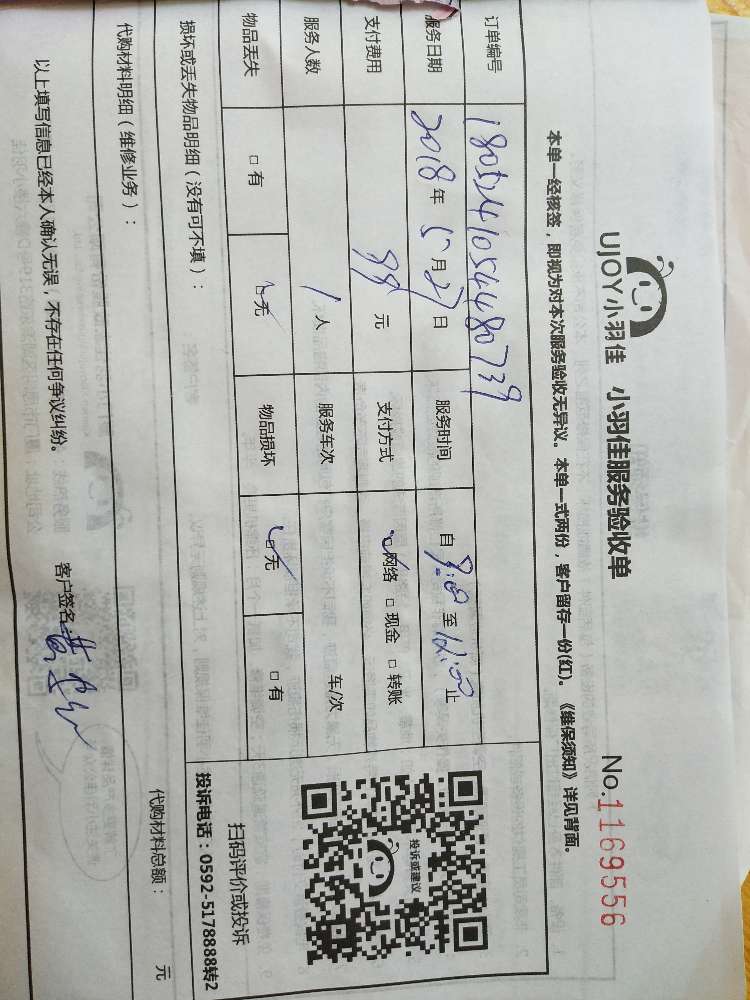 UJOY小羽佳 小羽佳服务验收单 No.1169556
本单一经核签，即视为对本次服务验收无异议。本单一式两份，客户留存一份(红)。《维保须知》详见背面。
订单编号 180524105448739
服务日期 2018年5月27日 服务时间 自9:00至12:00止
支付费用 99元 支付方式 □网络 □现金 □转账
服务人数 1人 服务车次 车/次
物品丢失 □有 □无 物品损坏 □无 □有
投诉或建议
扫码评价或投诉
投诉电话：0592-5178888转2
损坏或丢失物品明细（没有可不填）：
代购材料明细（维修业务）： 代购材料总额： 元
以上填写信息已经本人确认无误，不存在任何争议纠纷。 客户签名: